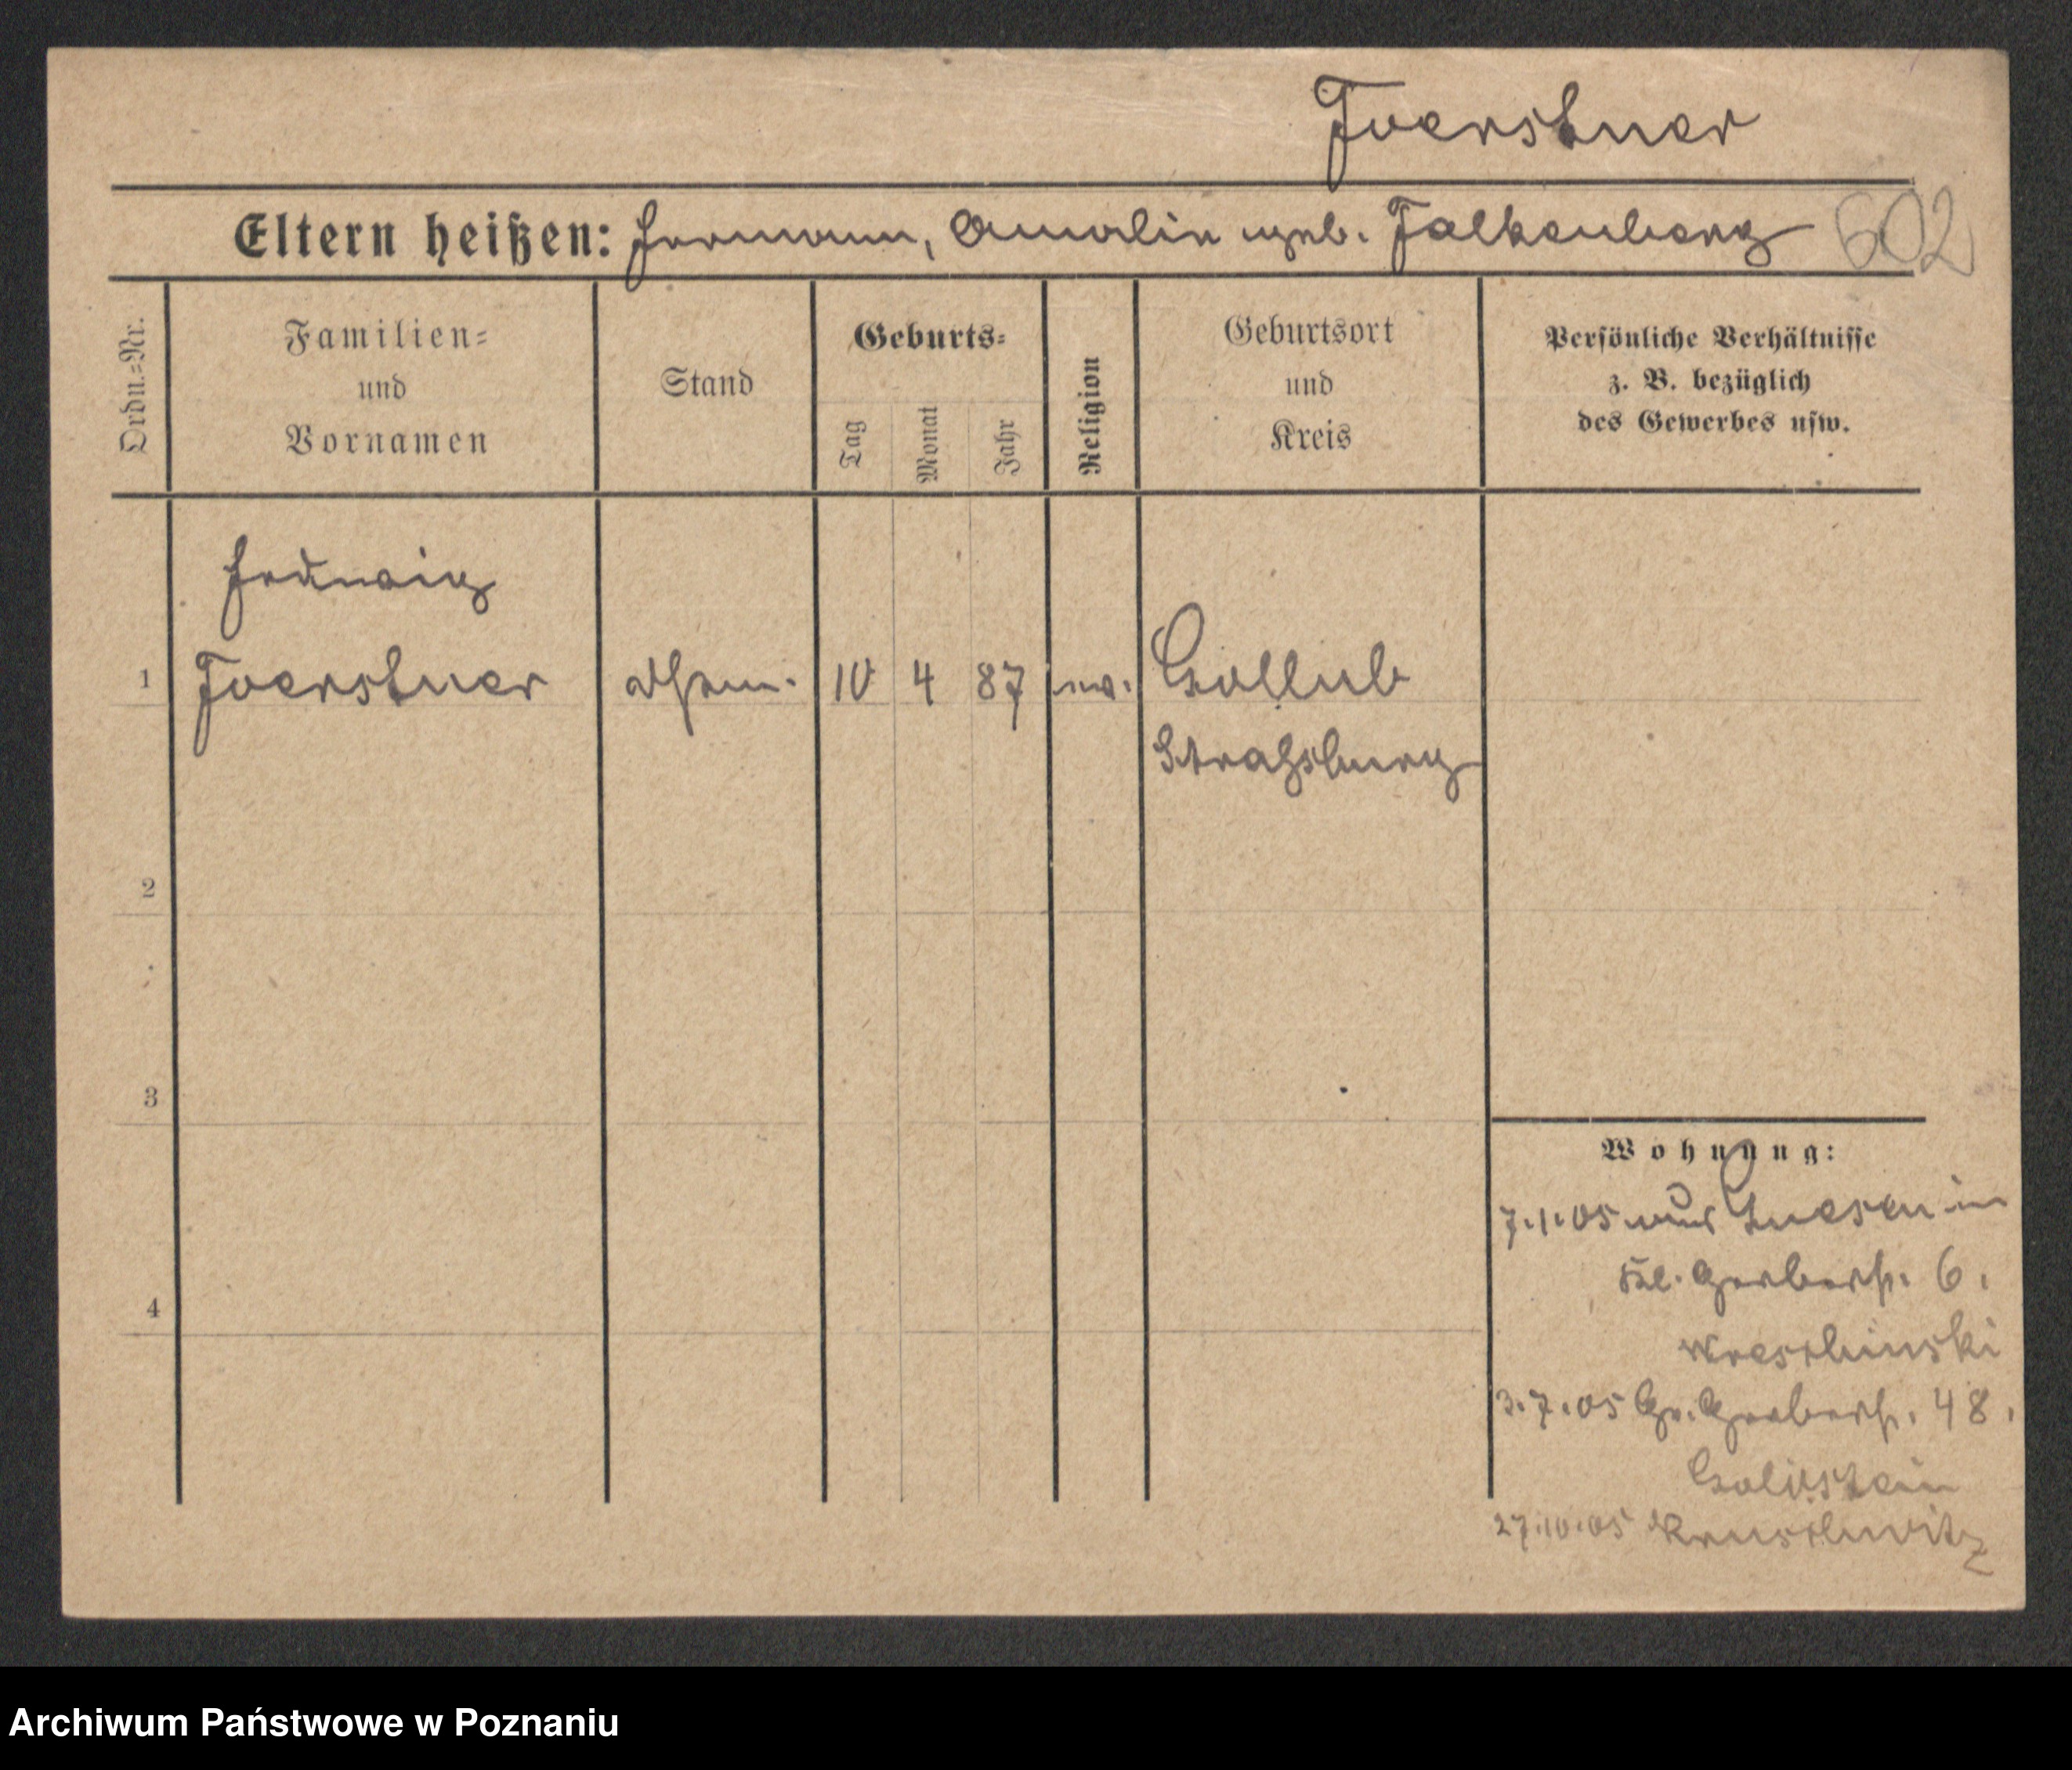 Foerstner
Eltern heißen: Hermann, Amalie geb. Falkenberg 602
Ordn.=Nr.
Familien=
und
Vornamen
Stand
Geburts=
Tag
Monat
Jahr
Religion
Geburtsort
und
Kreis
Persönliche Verhältnisse
z. B. bezüglich
des Gewerbes usw.
Hedwig
1 Foerstner 10 4 87 ev. Gollub
Strasburg
2
3
4
Wohnung:
7.1.05 aus Gnesen in
Kl. Gerberstr. 6.
Wreschinski
3.7.05 Gr. Gerberstr. 48.
Goldstein
27.10.05 Kruschwitz
Archiwum Państwowe w Poznaniu